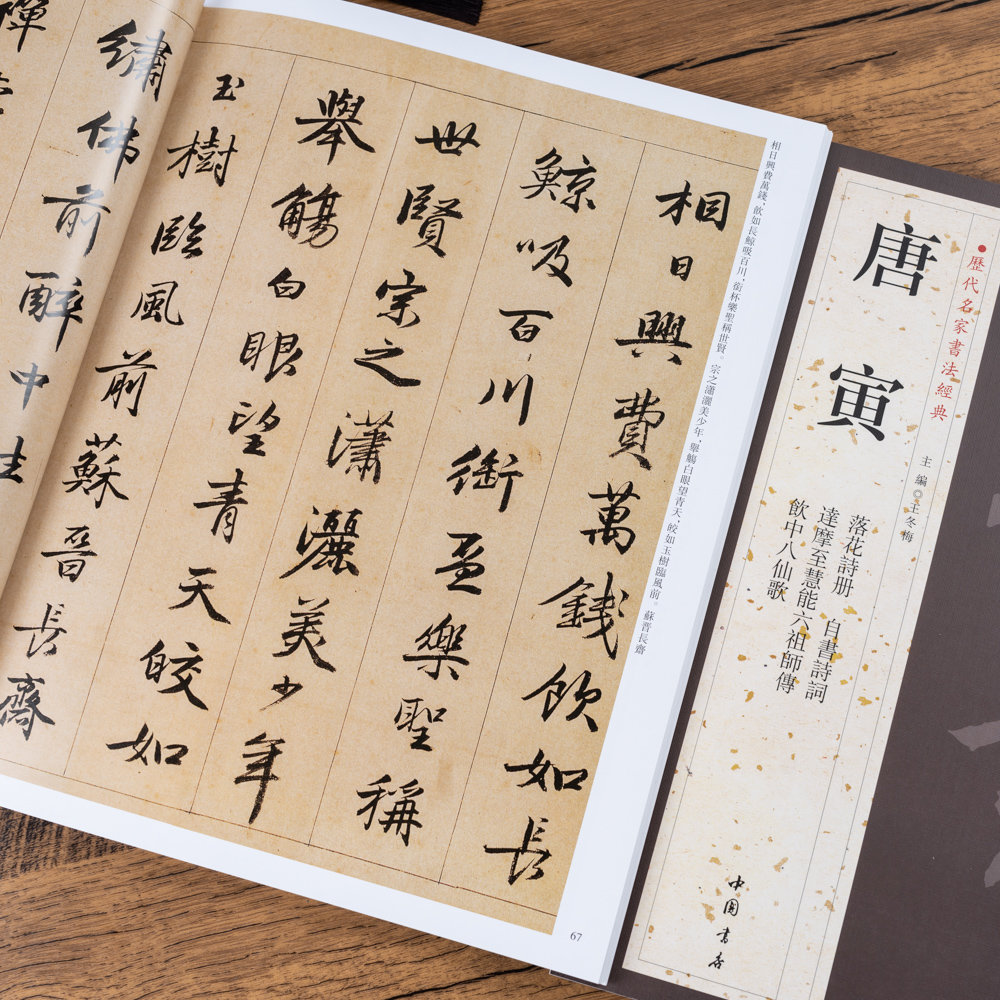 相日興費萬錢，飲如長鯨吸百川，銜杯樂聖稱世賢。宗之瀟灑美少年，舉觴白眼望青天，皎如玉樹臨風前。蘇晉長齋
相日興費萬錢飲如長
鯨吸百川銜盃樂聖稱
世賢宗之瀟灑美少年
舉觴白眼望青天皎如
玉樹臨風前蘇晉長齋
繡佛前醉中
禪
67
●歷代名家書法經典
唐寅
主編◎王冬梅
落花詩册 自書詩詞
達摩至慧能六祖師傳
飲中八仙歌
中國書店